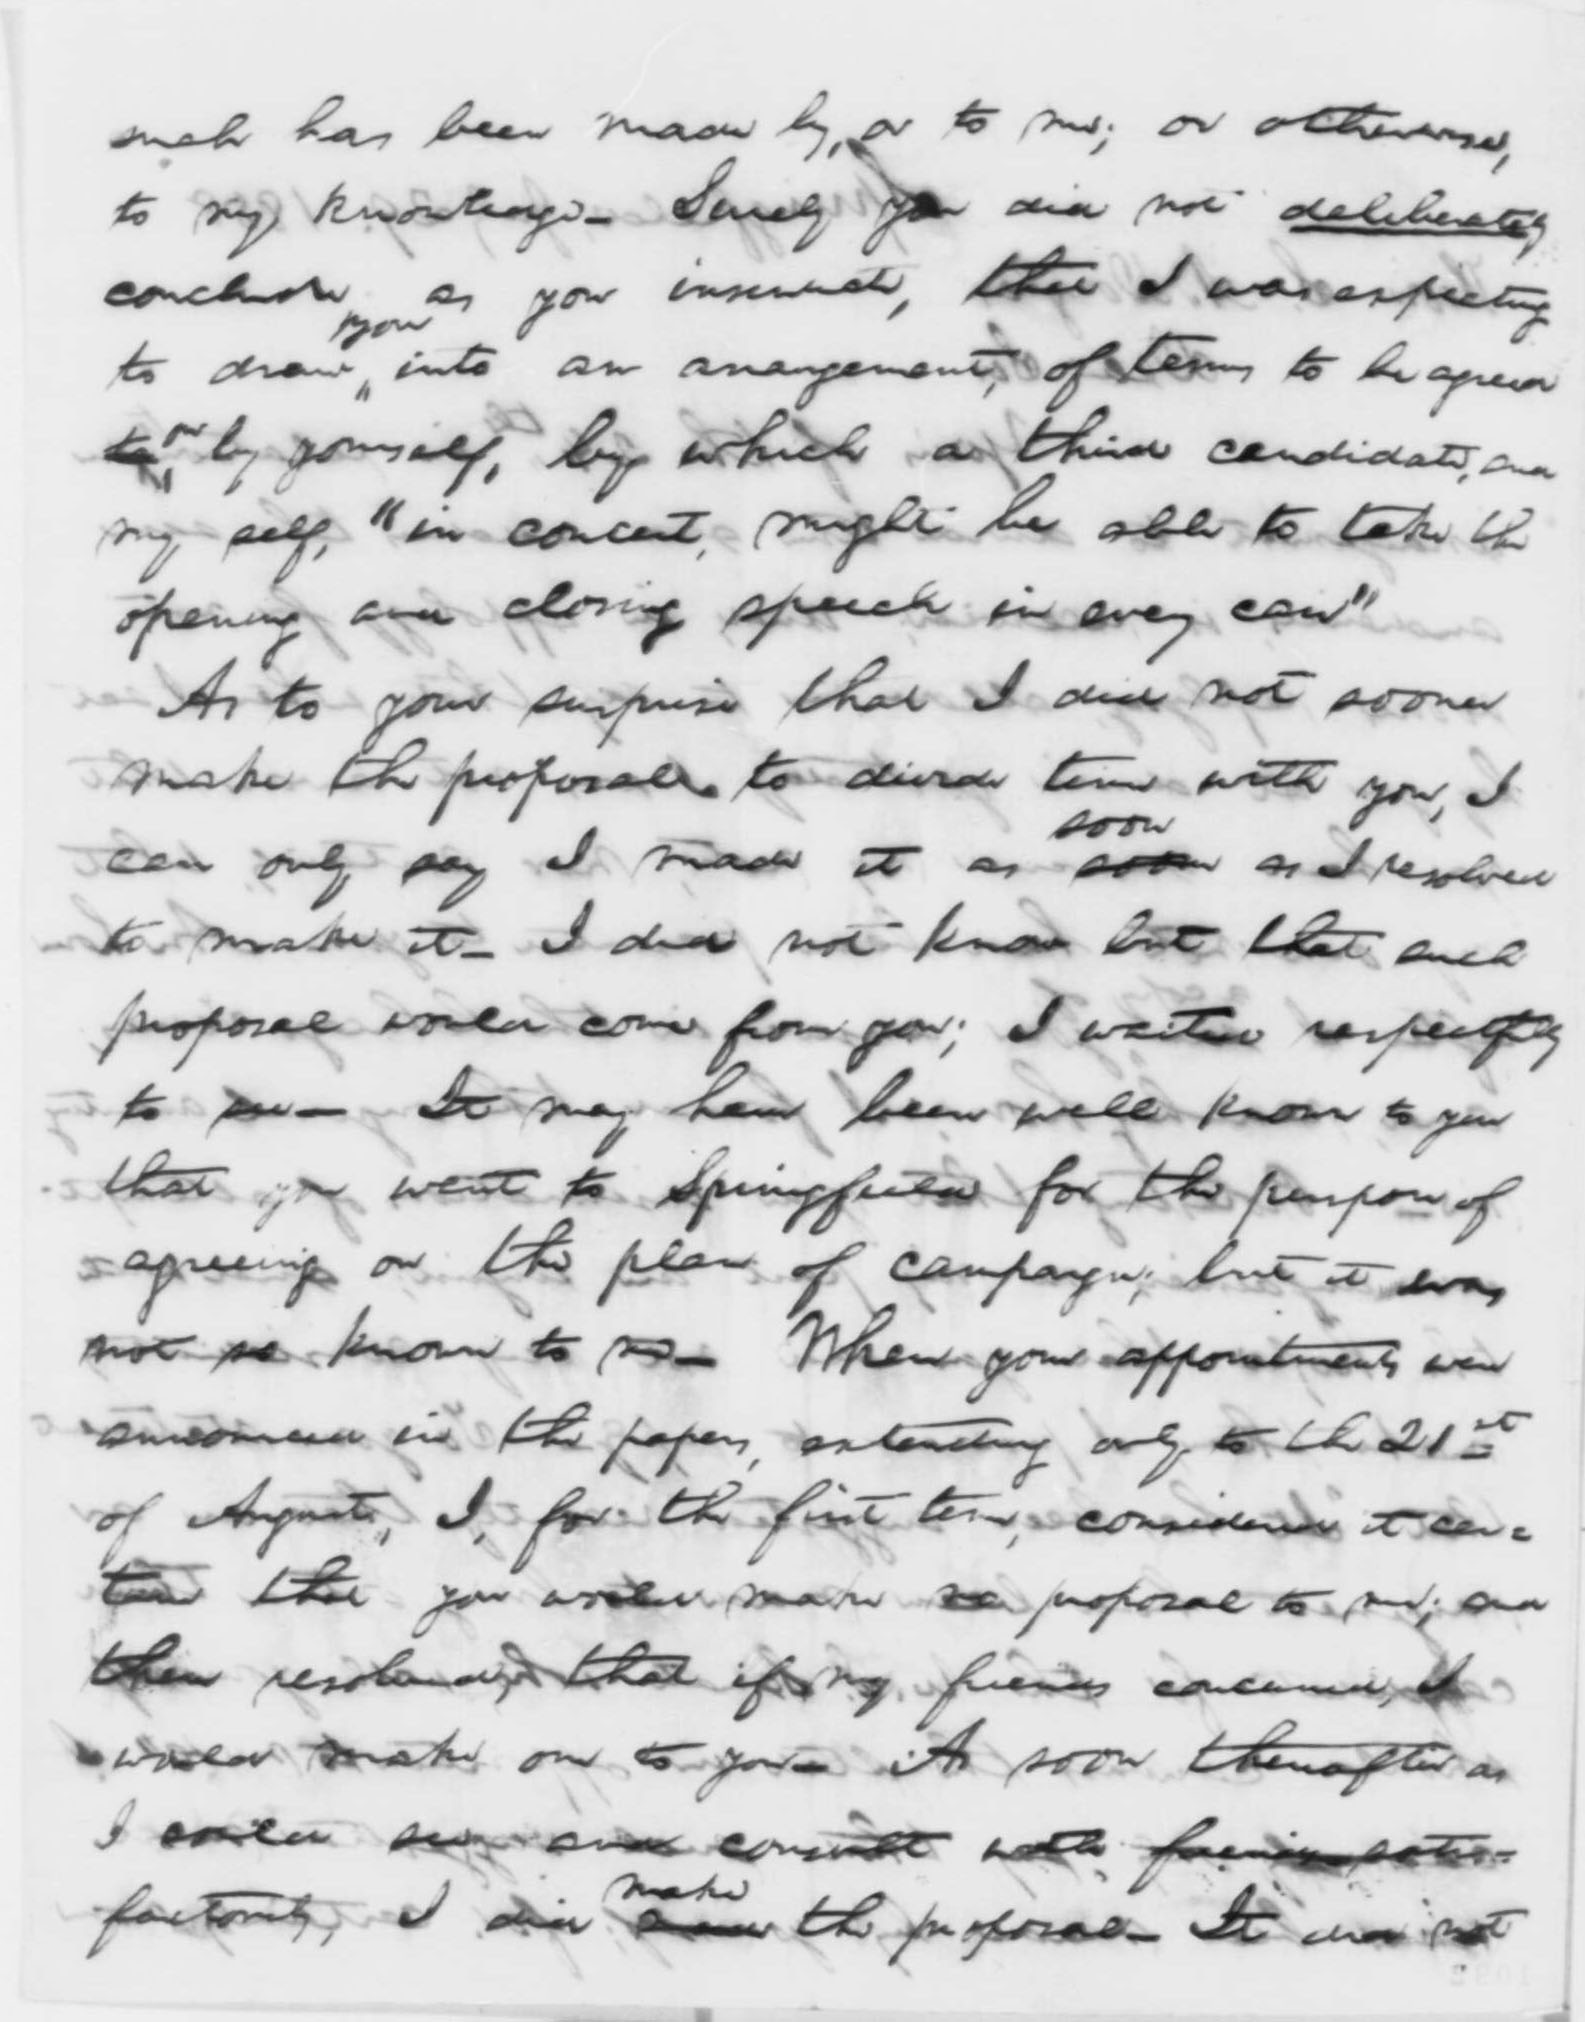 such has been made by, or to me; or otherwise,
to my knowledge— Surely you did not deliberately
conclude, as you insinuate, that I was expecting
to draw you into an arrangement, of terms to be agreed
to, on by yourself, by which a third candidate, and
my self, "in concert, might be able to take the
opening and closing speech in every case"
As to your surprise that I did not sooner
make the proposal to divide time with you, I
can only say I made it as soon soon as I resolved
to make it— I did not know but that such
proposal would come from you; I waited respectfully
to see— It may have been well known to you
that you went to Springfield for the purpose of
agreeing on the plan of campaign; but it was
not so known to me— When your appointments were
announced in the papers, extending only to the 21st
of August, I, for the first time, considered it cer=
tain that you would make no proposal to me; and
then resolved, that if my friends concurred, I
would make one to you— As soon thereafter as
I could see and consult with friends satis-
factorily, I did make the proposal— It did not